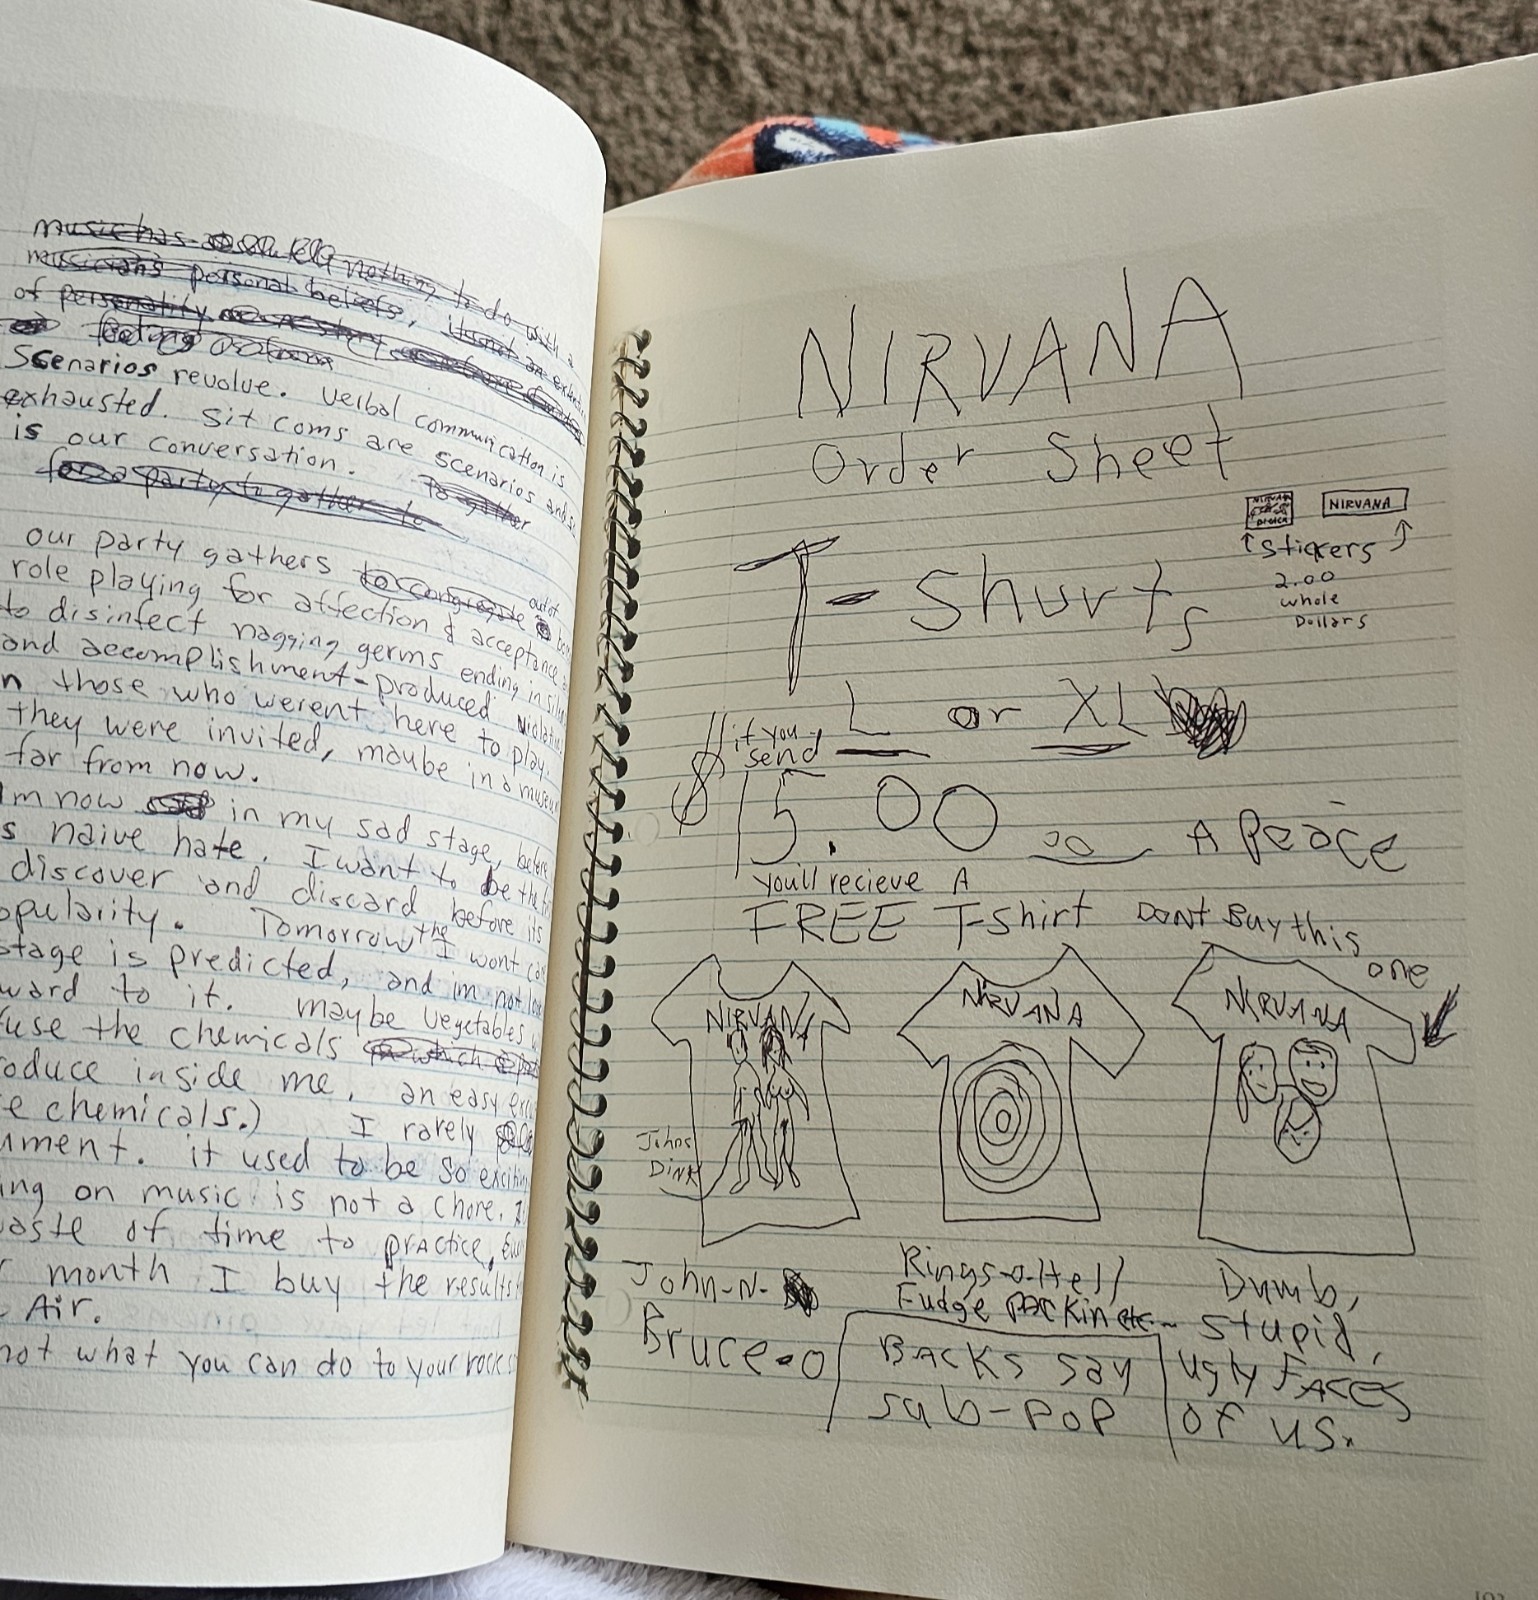 music has nothing to do with a
musicians personal beliefs,
of personality
Scenarios revolve. verbal communication is
exhausted. sit coms are scenarios and
is our conversation.
for a party to gather to
our party gathers out of
role playing for affection & acceptance
to disinfect nagging germs ending in
and accomplishment-produced violat
n those who werent here to play.
they were invited, maybe in a museu
far from now.
Im now in my sad stage, before
s naive hate. I want to be the
discover and discard before its
opularity. Tomorrow the I wont
stage is predicted, and im not
ward to it. maybe vegetables
fuse the chemicals
oduce inside me, an easy
e chemicals.) I rarely
ument. it used to be so exciti
ing on music is not a chore. I
waste of time to practice,
r month I buy the results
Air.
not what you can do to your rock
NIRVANA
Order Sheet
NIRVANA
NIRVANA
stickers
2.00
whole
Dollars
T-Shurts
L or XL
if you
send
$15.00 oo A peace
youll recieve A
FREE T-shirt Dont Buy this
one
NIRVANA
NIRVANA
NIRVANA
Johns
DINK
John-N-
Bruce-o
Rings-o-Hell
Fudge PACKin etc
BACKS say
sub-POP
Dumb,
Stupid,
ugly FACES
of us.